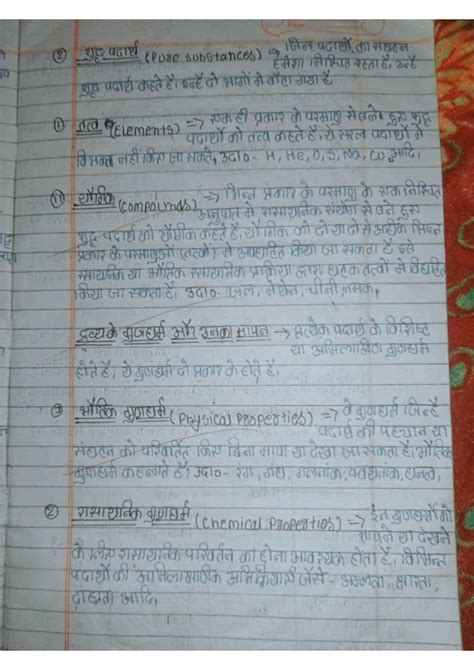 ② शुद्ध पदार्थ (Pure substances) → जिन पदार्थों का संघटन
हमेशा निश्चित रहता है, उन्हें
शुद्ध पदार्थ कहते हैं। इन्हें दो भागों में बाँटा गया है
① तत्व (Elements) ⇒ एक ही प्रकार के परमाणु से बने हुए शुद्ध
पदार्थों को तत्व कहते हैं, ये सरल पदार्थों में
विभक्त नहीं किए जा सकते, उदा०- H, He, O, S, Na, Cu आदि,
⑪ यौगिक (compounds) ⇒ भिन्न प्रकार के परमाणु के एक निश्चित
अनुपात में रासायनिक संयोग से बने हुए
शुद्ध पदार्थ को यौगिक कहते हैं, यौगिक को दो या दो से अधिक भिन्न
प्रकार के परमाणुओं (तत्वों) में किया जा सकता है, इसे
रासायनिक या भौतिक रासायनिक प्रक्रिया द्वारा घटक तत्वों में
किया जा सकता है, उदा०- जल, मेथेन, चीनी, नमक,
द्रव्य के गुणधर्म और उनका मापन → प्रत्येक पदार्थ के विशिष्ट
या अभिलाक्षणिक गुणधर्म
होते हैं, ये गुणधर्म दो प्रकार के होते हैं,
① भौतिक गुणधर्म (Physical Properties) ⇒ वे गुणधर्म जिन्हें
पदार्थ की पहचान या
संघटन को परिवर्तित किए बिना मापा या देखा जा सकता है, भौतिक
गुणधर्म कहलाते हैं। उदा०- रंग, गंध, गलनांक, क्वथनांक, घनत्व,
② रासायनिक गुणधर्म (Chemical Properties) ⇒ इन गुणधर्मों को
मापने या देखने
के लिए रासायनिक परिवर्तन का होना आवश्यक होता है, विभिन्न
पदार्थों की अभिलाक्षणिक अभिक्रियाएँ जैसे - अम्लता, क्षारता,
दाह्यता आदि,